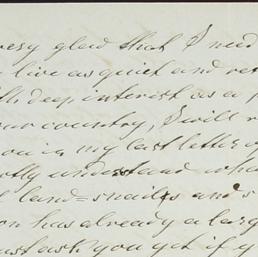 very glad that I need
live as quiet and re
deep interest as a
our country, I will
you in my last letter
understand wha
land=snails and s
on has already a larg
just ask you yet if y